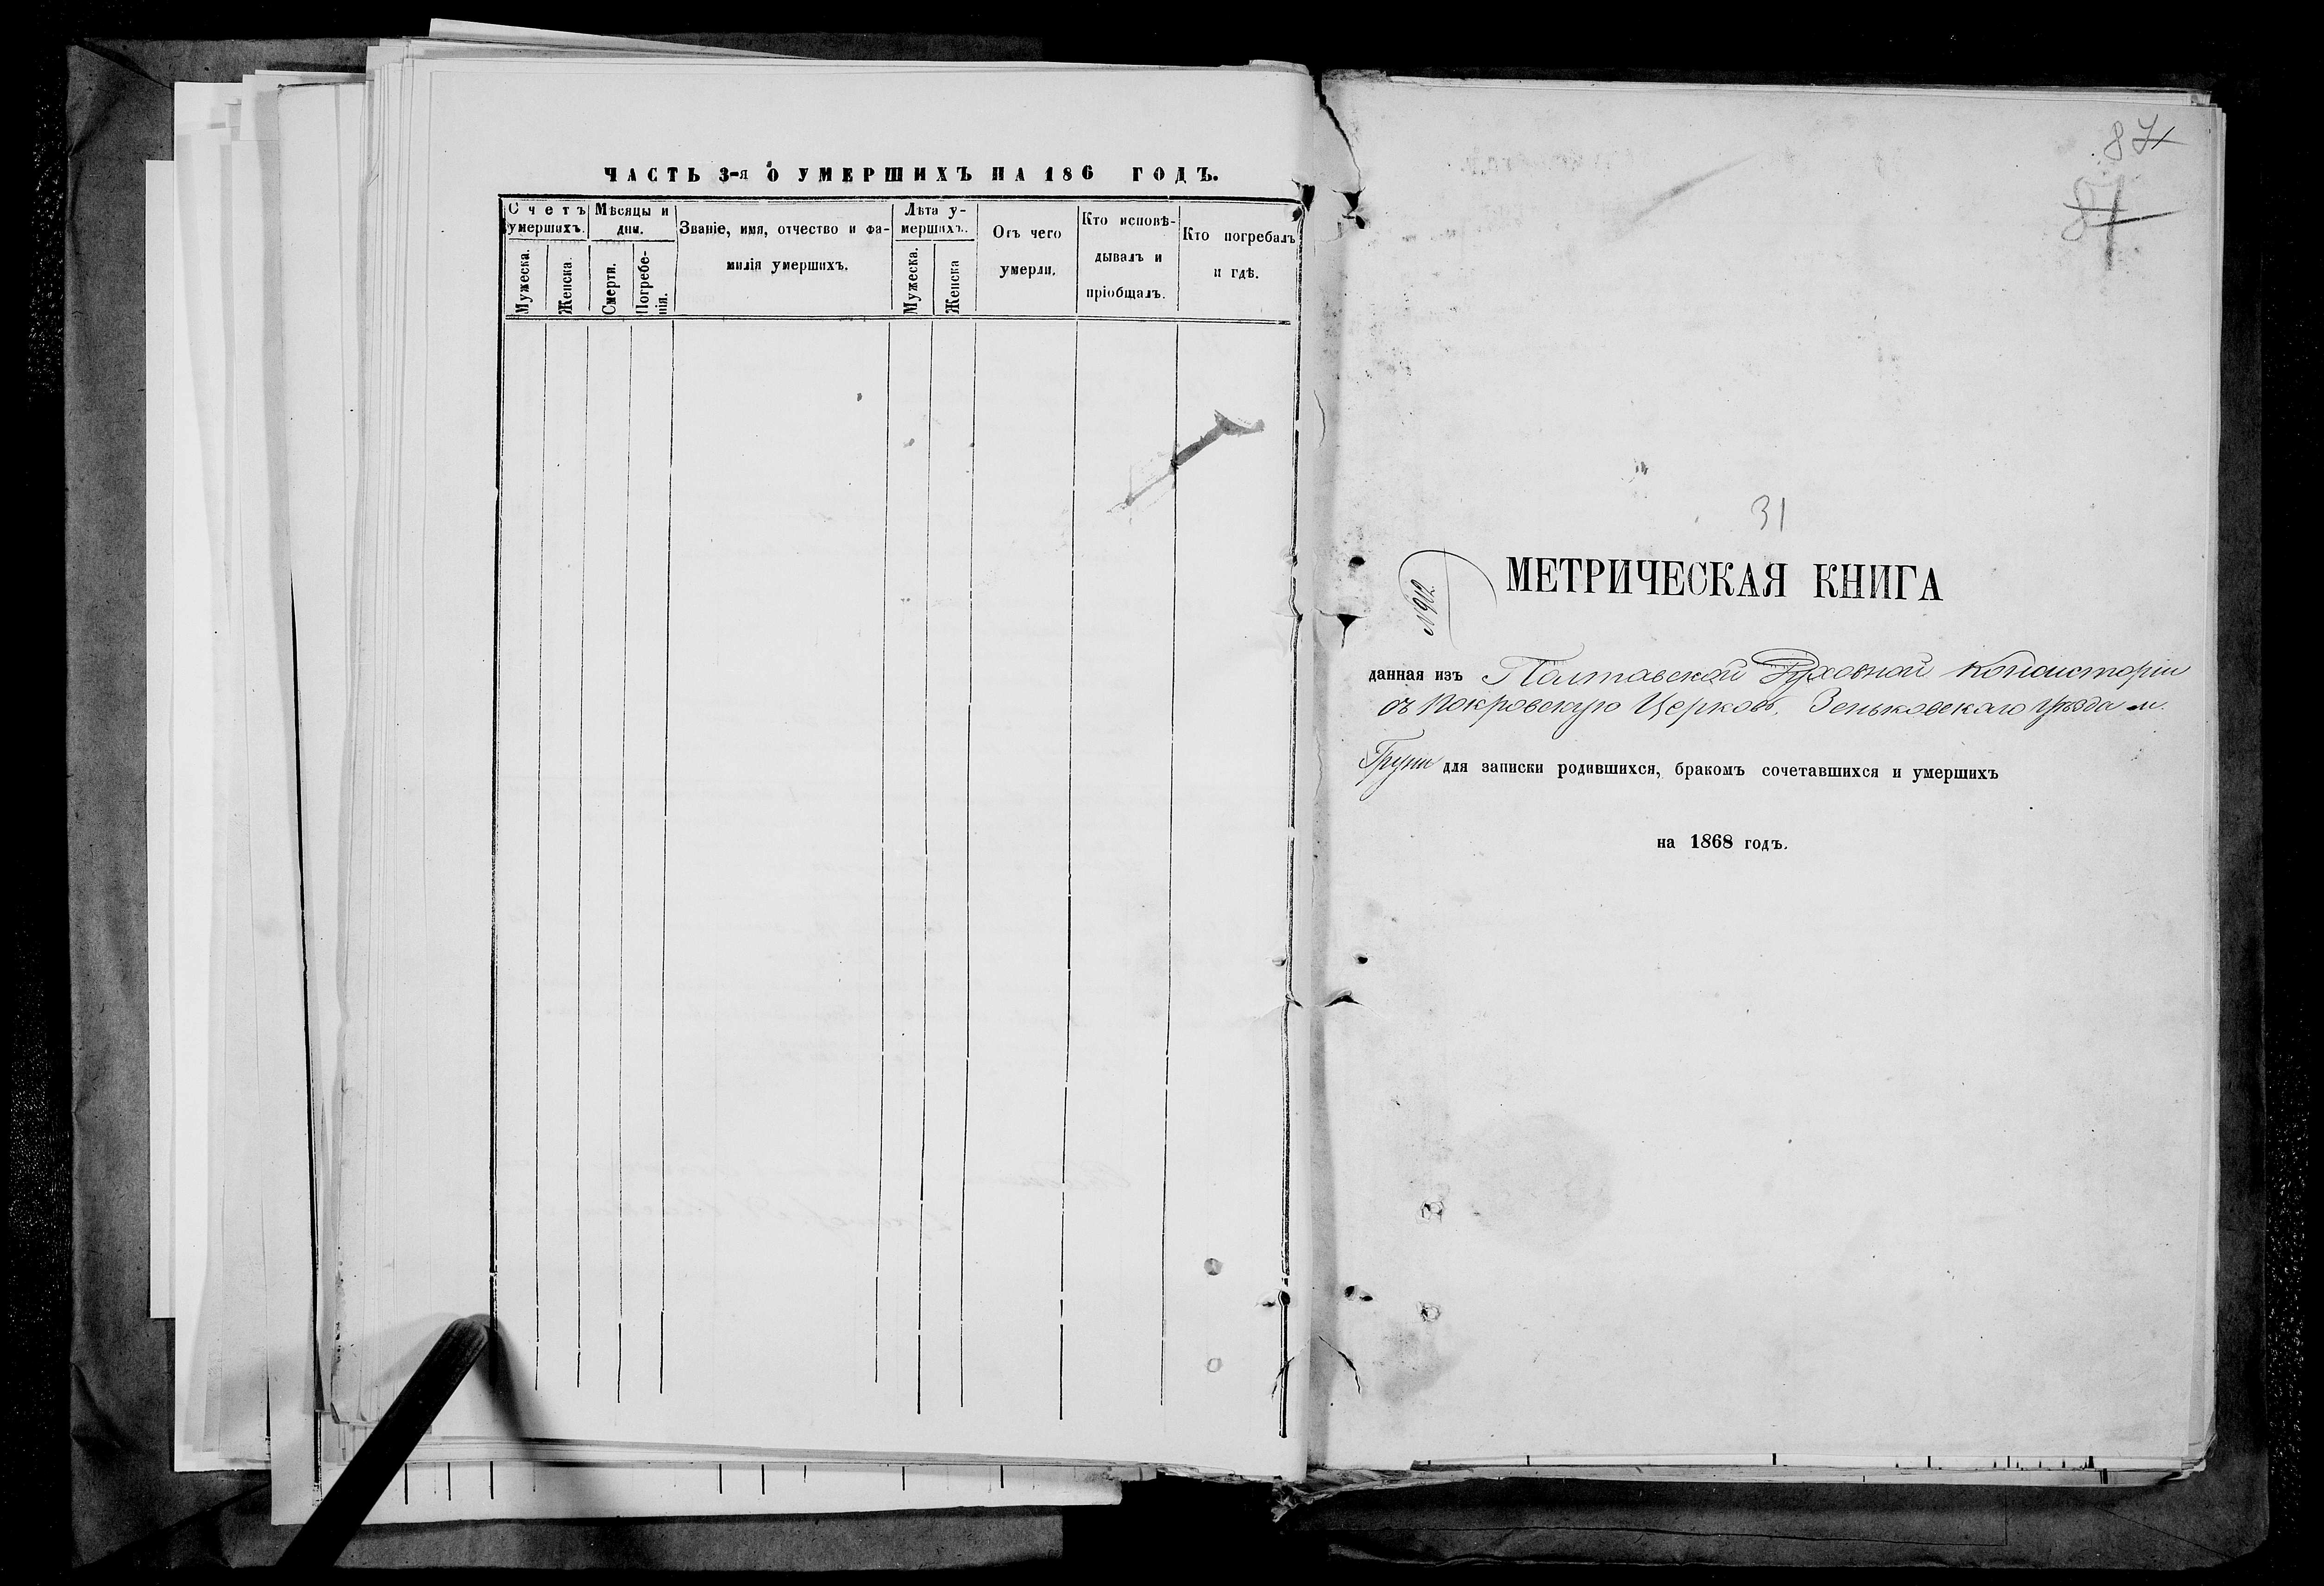 ЧАСТЬ 3-я О УМЕРШИХЪ НА 186 ГОДЪ.
Счетъ умершихъ.
Мужеска.
Женска.
Мѣсяцы и дни.
Смерти.
Погребенія.
Званіе, имя, отчество и фамилія умершихъ.
Лѣта умершихъ.
Мужеска.
Женска
Отъ чего умерли.
Кто исповѣдывалъ и пріобщалъ.
Кто погребалъ и гдѣ.
87
87
31
МЕТРИЧЕСКАЯ КНИГА
данная изъ Полтавской Духовной Консисторіи
въ Покровскую Церковь, Зеньковскаго уѣзда м.
Груни для записки родившихся, бракомъ сочетавшихся и умершихъ
на 1868 годъ.